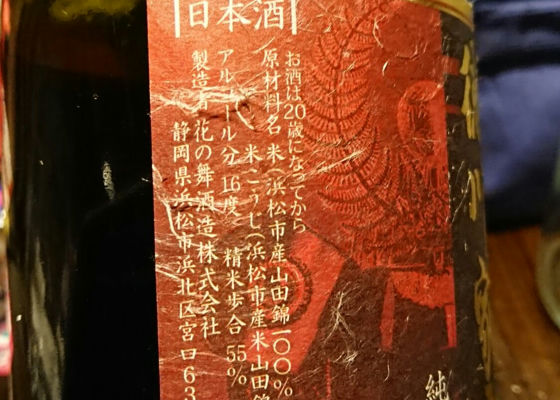 日本酒
お酒は20歳になってから
原材料名 米(浜松市産山田錦一〇〇%
米こうじ(浜松市産米山田錦
アルコール分 16度 精米歩合 55%
製造者 花の舞酒造株式会社
静岡県浜松市浜北区宮口63
純